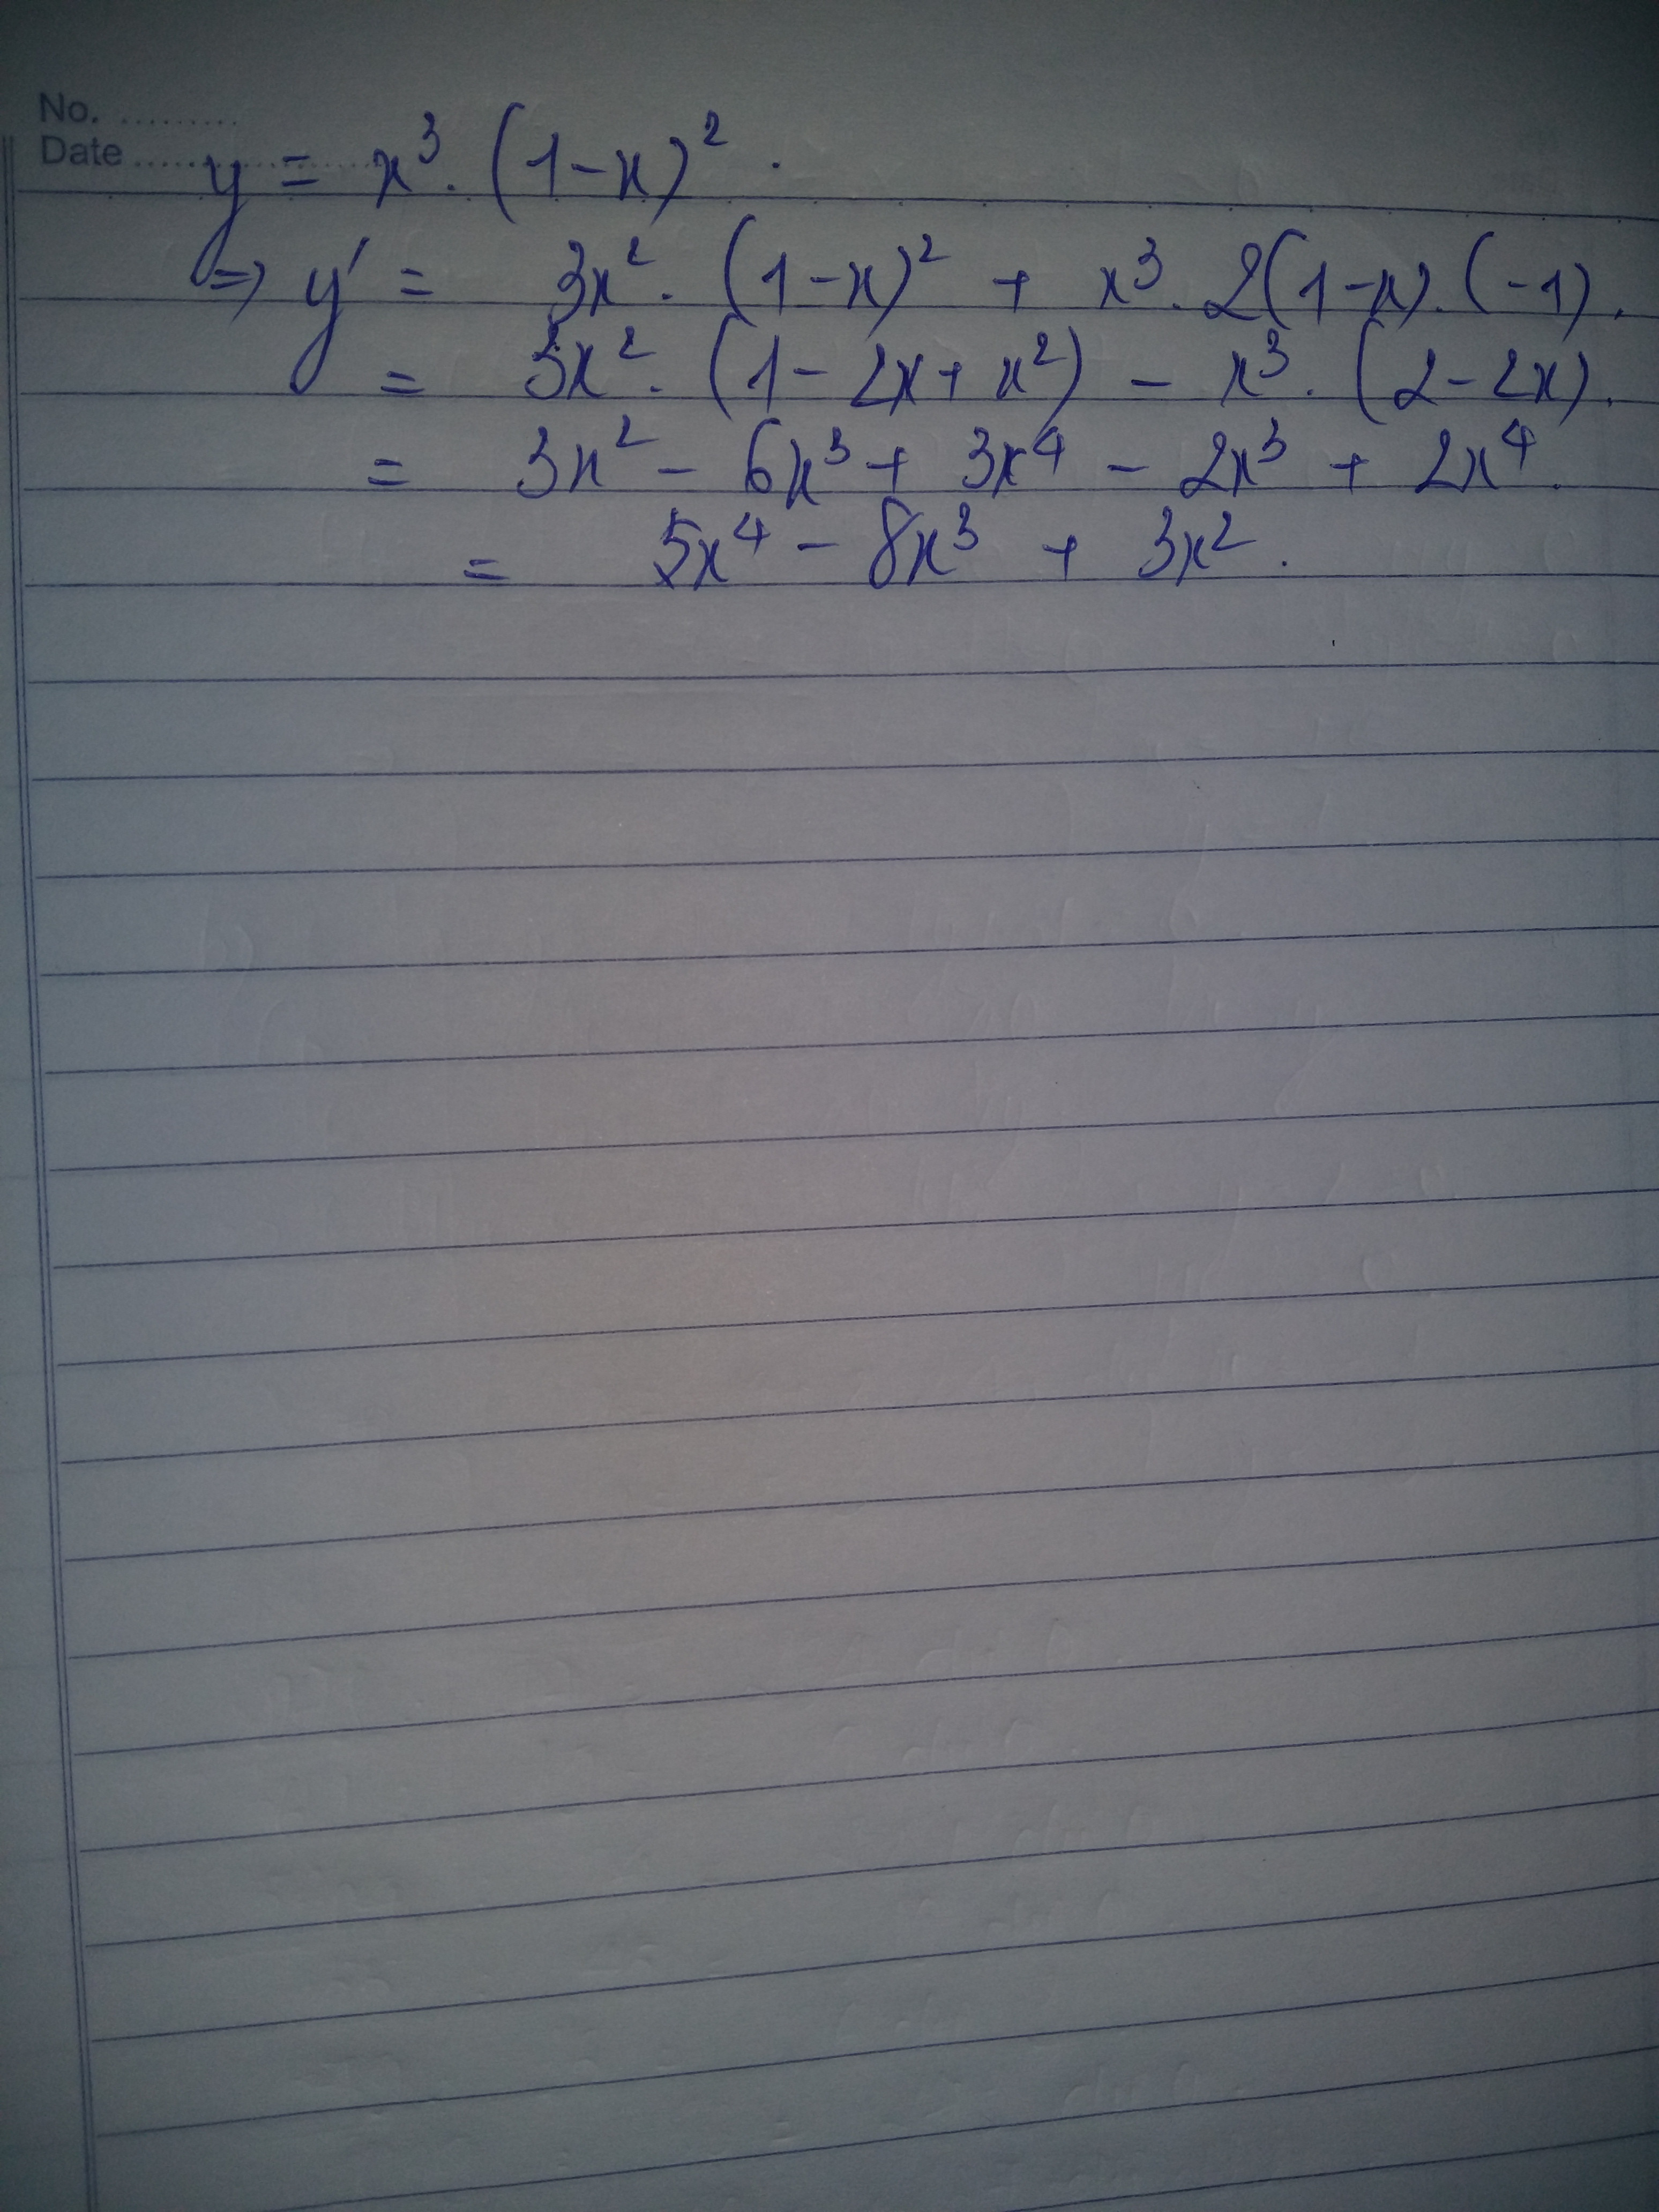 No. .........
Date ..................
y = x³. (1-x)².
=> y' = 3x². (1-x)² + x³. 2(1-x). (-1).
= 3x². (1 - 2x + x²) - x³. (2 - 2x).
= 3x² - 6x³ + 3x⁴ - 2x³ + 2x⁴.
= 5x⁴ - 8x³ + 3x².